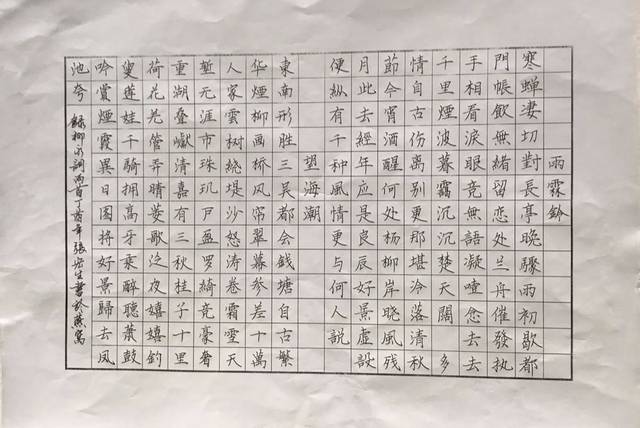 雨霖鈴
寒蟬凄切對長亭晚驟雨初歇都
門帳飲無緒留恋处兰舟催發执
手相看淚眼竞無語凝噎念去去
千里煙波暮靄沉沉楚天闊多
情自古伤离别更那堪冷落清秋
節今宵酒醒何处杨柳岸晓風残
月此去經年应是良辰好景虛設
便縱有千种風情更与何人説
望海潮
東南形胜三吴都会錢塘自古繁
华煙柳画桥风帘翠幕参差十萬
人家雲树绕堤沙怒涛卷霜雪天
堑无涯市珠玑户盈罗綺竞豪奢
重湖叠巘清嘉有三秋桂子十里
荷花羌管弄晴菱歌泛夜嬉嬉釣
叟蓮娃千骑拥高牙乘醉聽萧鼓
吟賞煙霞異日图将好景歸去凤
池夸 録柳永詞两首丁酉年張安生書於燕寓